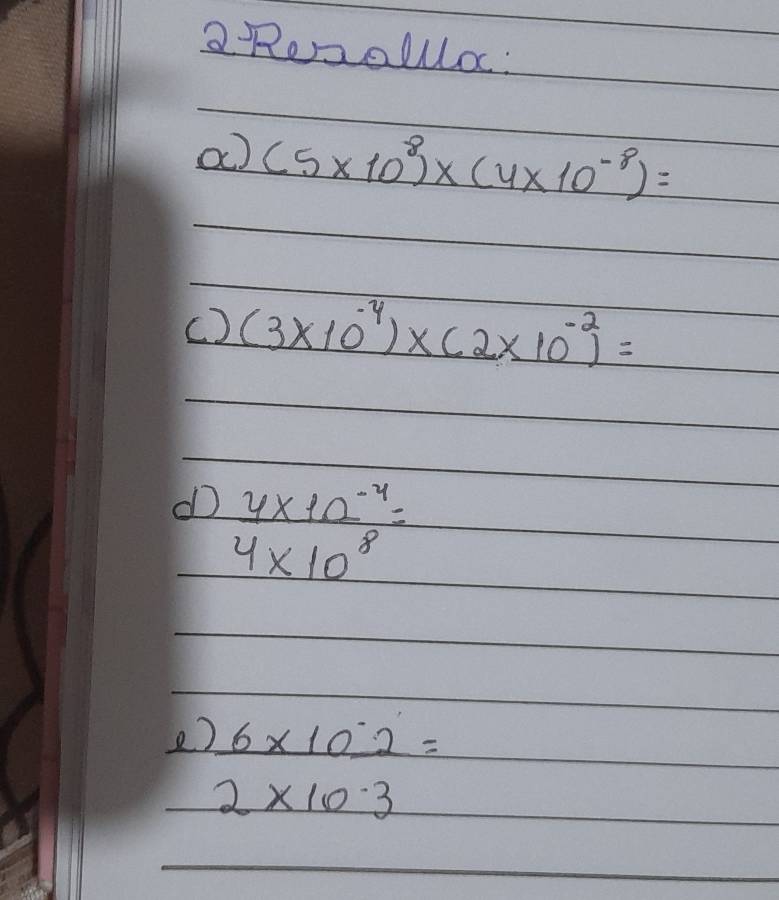 2-Resolva:
a) (5×10⁸)×(4×10⁻⁸)=
c) (3×10⁻⁴)×(2×10⁻²)=
d) 4×10⁻⁴=
4×10⁸
e) 6×10⁻2=
2×10-3